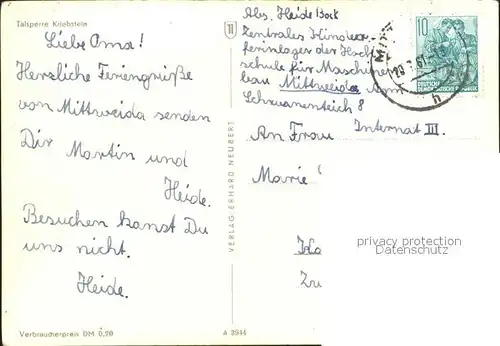 Talsperre Kriebstein
Liebe Oma!
Herzliche Feriengrüße
von Mittweida senden
Dir Martin und
Heide.
Besuchen kanst Du
uns nicht.
Heide.
Verbraucherpreis DM 0,20
VERLAG ERHARD NEUBERT
A 3944
Abs. Heide Bock
Zentrales Kinder
ferienlager der Hoch
schule für Maschinen
bau Mittweida Am
Schwanenteich 8
Internat III.
An Frau
Marie
Zu
10
DEUTSCHE
DEMOKRATISCHE REPUBLIK
privacy protection
Datenschutz